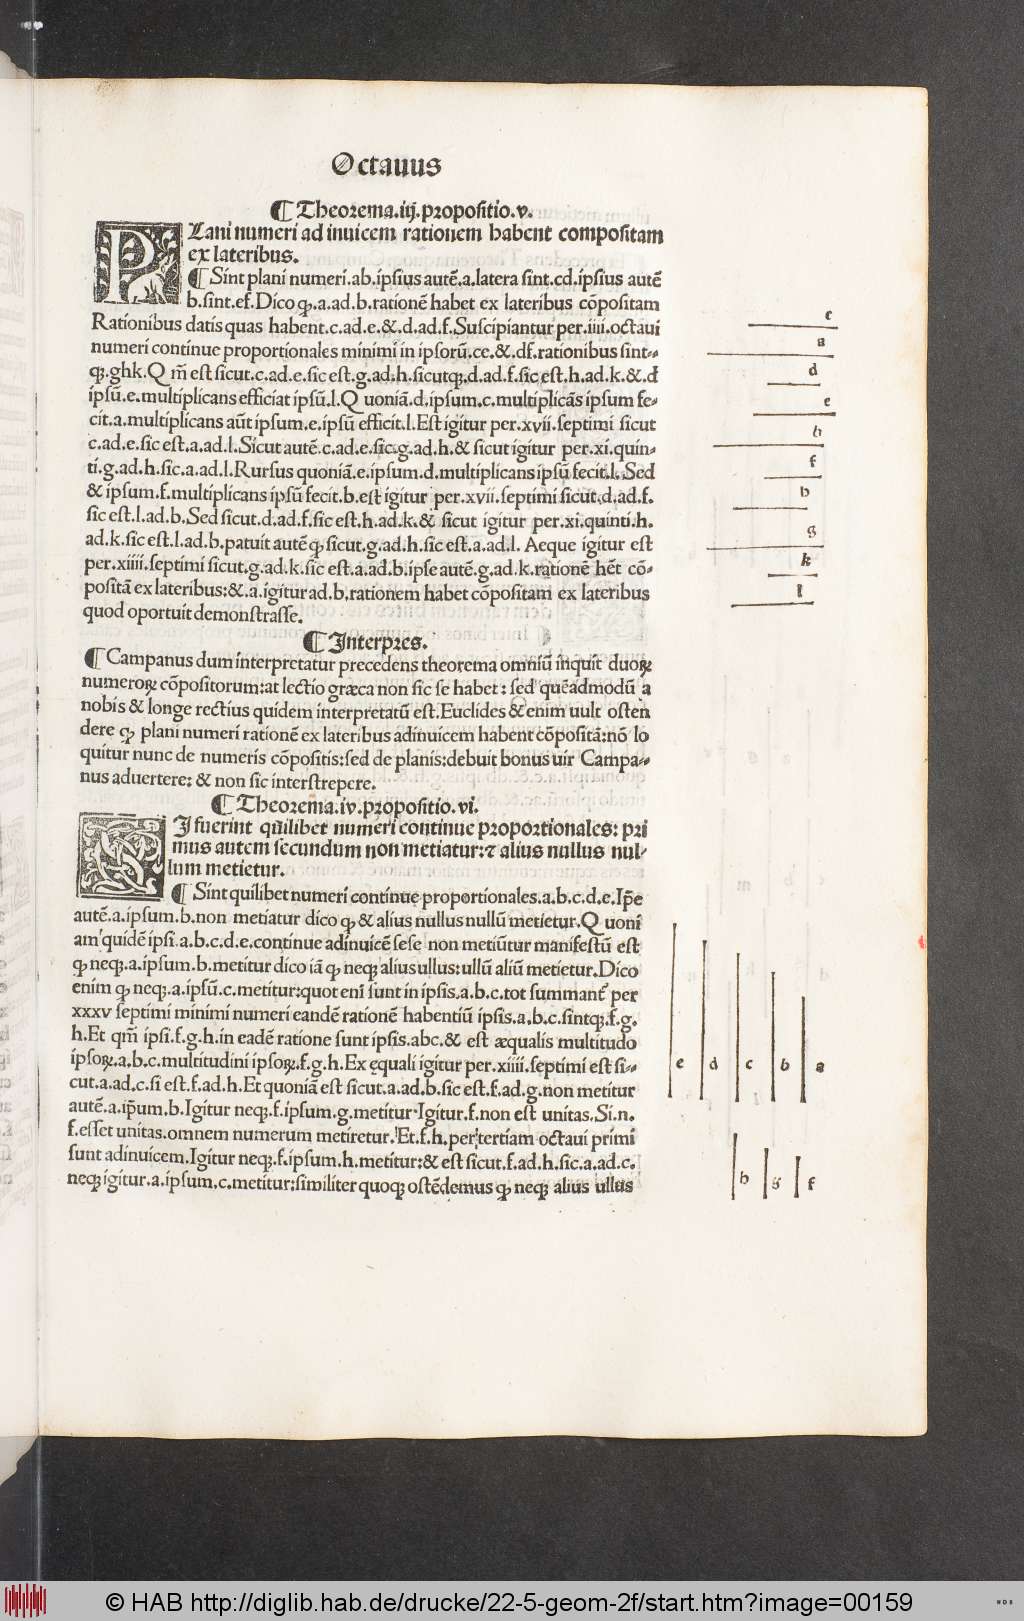 Octauus
¶ Theorema.iij.propositio.v.
PLani numeri ad inuicem rationem habent compositam
ex lateribus.
¶ Sint plani numeri.ab.ipsius autē.a.latera sint.cd.ipsius autē
b.sint.ef.Dico ꝙ.a.ad.b.rationē habet ex lateribus cōpositam
Rationibus datis quas habent.c.ad.e.&.d.ad.f.Suscipiantur per.iiii.octaui
numeri continue proportionales minimi in ipsorū.ce.&.df.rationibus sint-
qꝫ.ghk.Qm̄ est sicut.c.ad.e.sic est.g.ad.h.sicutqꝫ.d.ad.f.sic est.h.ad.k.&.d
ipsū.e.multiplicans efficiat ipsū.l.Quoniā.d.ipsum.c.multiplicās ipsum fe-
cit.a.multiplicans aūt ipsum.e.ipsū efficit.l.Est igitur per.xvii.septimi sicut
c.ad.e.sic est.a.ad.l.Sicut autē.c.ad.e.sic.g.ad.h.& sicut igitur per.xi.quin-
ti.g.ad.h.sic.a.ad.l.Rursus quoniā.e.ipsum.d.multiplicans ipsū fecit.l.Sed
& ipsum.f.multiplicans ipsū fecit.b.est igitur per.xvii.septimi sicut.d.ad.f.
sic est.l.ad.b.Sed sicut.d.ad.f.sic est.h.ad.k.& sicut igitur per.xi.quinti.h.
ad.k.sic est.l.ad.b.patuit autē ꝙ sicut.g.ad.h.sic est.a.ad.l. Aeque igitur est
per.xiiii.septimi sicut.g.ad.k.sic est.a.ad.b.ipse autē.g.ad.k.rationē hēt cō-
positā ex lateribus:&.a.igitur ad.b.rationem habet cōpositam ex lateribus
quod oportuit demonstrasse.
¶ Interpres.
¶ Campanus dum interpretatur precedens theorema omniū inquit duoꝝ
numeroꝝ cōpositorum:at lectio græca non sic se habet: sed quēadmodū a
nobis & longe rectius quidem interpretatū est.Euclides & enim uult osten
dere ꝙ plani numeri rationē ex lateribus adinuicem habent cōpositā:nō lo
quitur nunc de numeris cōpositis:sed de planis:debuit bonus uir Campa-
nus aduertere: & non sic interstrepere.
¶ Theorema.iv.propositio.vi.
SI fuerint quilibet numeri continue proportionales: pri
mus autem secundum non metiatur:⁊ alius nullus nul-
lum metietur.
¶ Sint quilibet numeri continue proportionales.a.b.c.d.e.Ip̄e
autē.a.ipsum.b.non metiatur dico ꝙ & alius nullus nullū metietur.Quoni
am quidē ipsi.a.b.c.d.e.continue adinuicē sese non metiūtur manifestū est
ꝙ neqꝫ.a.ipsum.b.metitur dico iā ꝙ neqꝫ alius ullus:ullū aliū metietur.Dico
enim ꝙ neqꝫ.a.ipsū.c.metitur:quot eni sunt in ipsis.a.b.c.tot summant᷑ per
xxxv septimi minimi numeri eandē rationē habentiū ipsis.a.b.c.sintqꝫ.f.g.
h.Et qm̄ ipsi.f.g.h.in eadē ratione sunt ipsis.abc.& est æqualis multitudo
ipsoꝝ.a.b.c.multitudini ipsoꝝ.f.g.h.Ex ęquali igitur per.xiiii.septimi est si-
cut.a.ad.c.si est.f.ad.h.Et quoniā est sicut.a.ad.b.sic est.f.ad.g.non metitur
autē.a.ip̄um.b.Igitur neqꝫ.f.ipsum.g.metitur.Igitur.f.non est unitas.Si.n.
f.esset unitas.omnem numerum metiretur.Et.f.h.per tertiam octaui primi
sunt adinuicem.Igitur neqꝫ.f.ipsum.h.metitur:& est sicut.f.ad.h.sic.a.ad.c.
neqꝫ igitur.a.ipsum.c.metitur:similiter quoqꝫ ostēdemus ꝙ neqꝫ alius ullus
c
a
d
e
h
f
b
g
k
l
e d c b a
h g f
© HAB http://diglib.hab.de/drucke/22-5-geom-2f/start.htm?image=00159